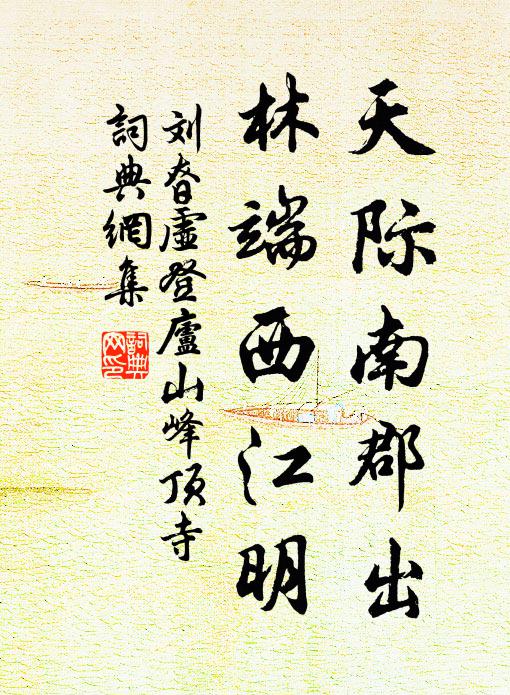 天际南郡出
林端西江明
刘眘虚登廬山峰顶寺
詞典網集
詞典网印